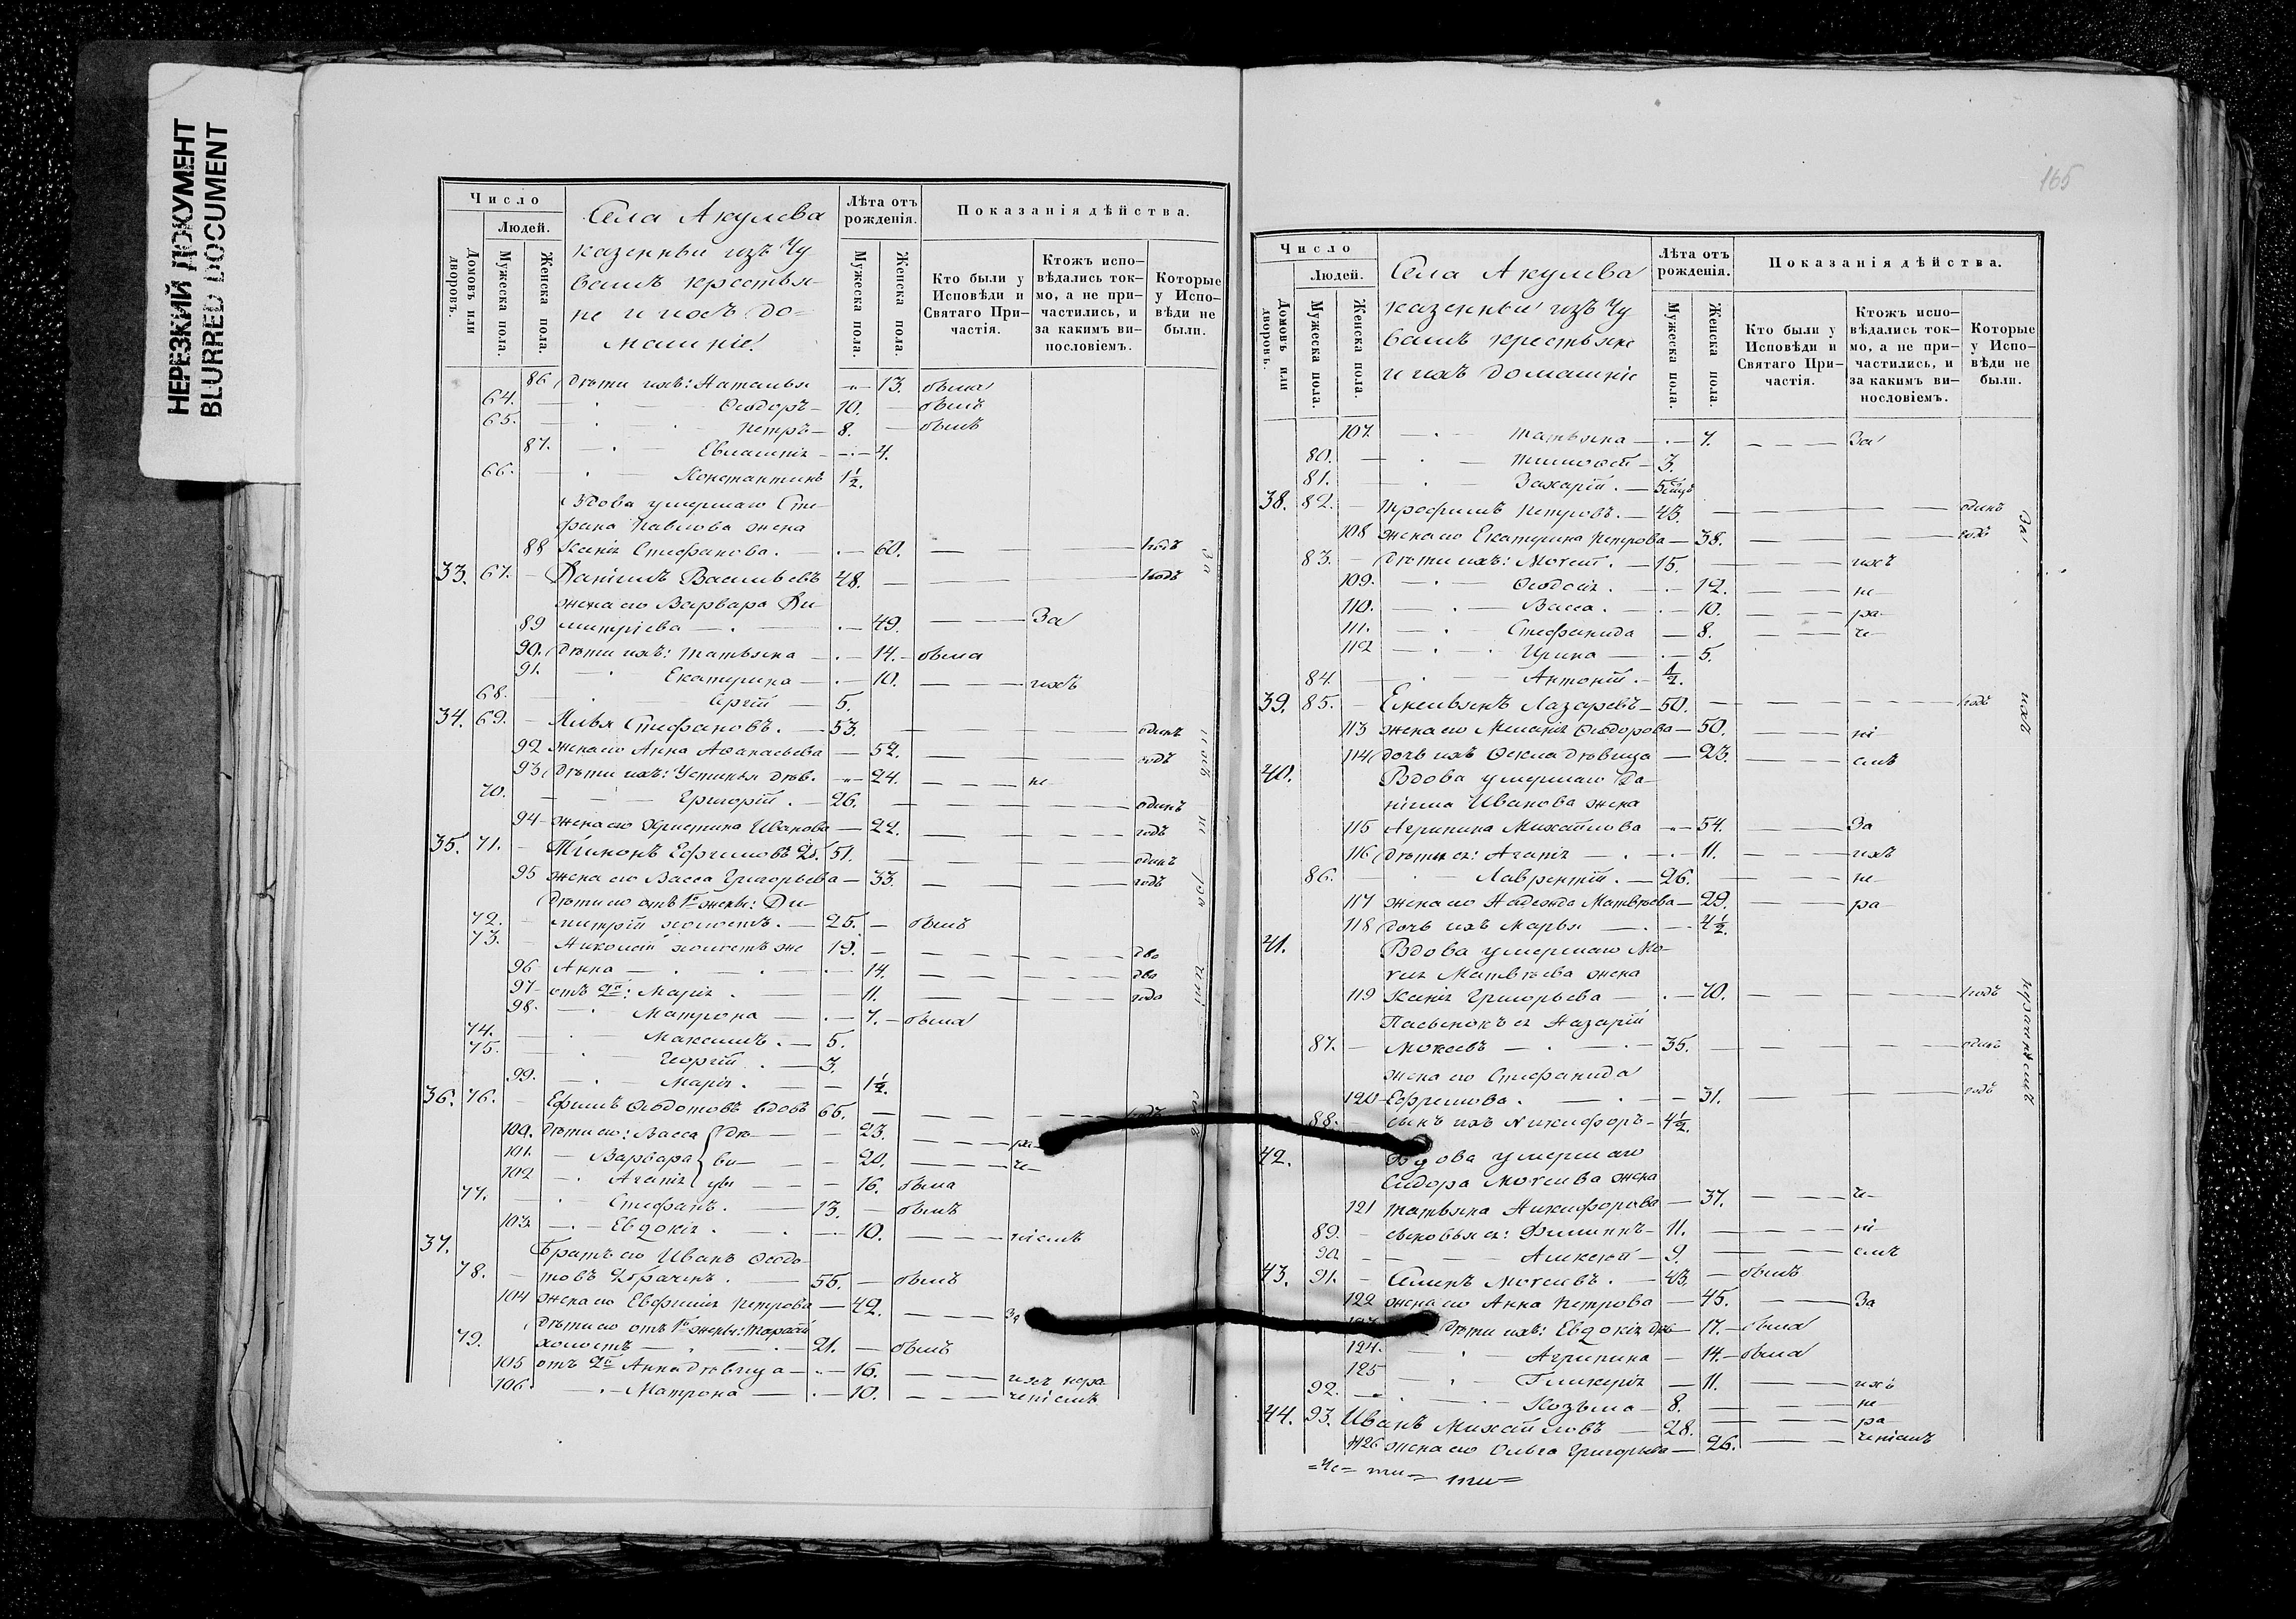 НЕРЕЗКИЙ ДОКУМЕНТ
BLURRED DOCUMENT
Число
Людей.
Домовъ или дворовъ.
Мужеска пола.
Женска пола.
Села Акулева
казенныи изъ Чу
вашъ крестья-
не и ихъ до=
машніе
Лѣта отъ рожденія.
Мужеска пола.
Женска пола.
Показанія дѣйства.
Кто были у Исповѣди и Святаго Причастія.
Ктожъ исповѣдались токмо, а не причастились, и за какимъ винословіемъ.
Которые у Исповѣди не были.
86 дѣти ихъ: Наталья 13. была
64. Ѳеодоръ 10. былъ
65. Петръ 8. былъ
87. Евлампія 4.
66. Константинъ 1½.
Вдова умершаго Сте-
фана Павлова жена
88 Ксенія Стефанова. 60. 1годъ
33. 67. Даніилъ Васильевъ 48. 1годъ
жена его Варвара Ди-
89 митріева 49. За
90. дѣти ихъ: Татьяна 14. была
91. Екатерина 10. ихъ
68. Сергій 5.
34. 69. Илья Стефановъ. 53. одинъ
92 жена его Анна Аѳанасьева 52. годъ
93 дѣти ихъ: Устинья дѣв. 24. не
70. Григорій. 26. одинъ
94 жена его Христина Иванова 22. годъ
35. 71. Тихонъ Ефимовъ 2б. 51. одинъ
95 жена его Васса Григорьева 33. годъ
дѣти его отъ 1й жены: Ди-
72. митрій холостъ. 25. былъ
73. Николай холостъ же 19. два
96 Анна 14. два
97 отъ 2й: Марія. 11. года
98. Матрона 7. была
74. Максимъ. 5.
75. Георгій. 3.
99. Марія. 1½.
36. 76. Ефимъ Ѳеодотовъ вдовъ 65. годъ
100. дѣти его: Васса дѣ 23. ра-
101. Варвара ви 20. че-
102 Агапія цы 16. была
77. Стефанъ. 13. былъ
103. Евдокія. 10. ніемъ
37. Братъ его Иванъ Ѳеодо-
78. товъ 2браченъ. 55. былъ
104 жена его Евфимія Петрова 42. За
дѣти его отъ 1й жены: Тарасій
79. холостъ 21. былъ
105 отъ 2й Анна дѣвица 16. ихъ нера
106. Матрона 10. ченіемъ
За ихъ не ра чені емъ
165
Число
Людей.
Домовъ или дворовъ.
Мужеска пола.
Женска пола.
Села Акулева
казенныи изъ Чу
вашъ крестьяне
и ихъ домашніе
Лѣта отъ рожденія.
Мужеска пола.
Женска пола.
Показанія дѣйства.
Кто были у Исповѣди и Святаго Причастія.
Ктожъ исповѣдались токмо, а не причастились, и за какимъ винословіемъ.
Которые у Исповѣди не были.
107. Татьяна 7. За
80. Тимоѳей 3.
81. Захарій. 5
38. 82. Трофимъ Петровъ. 43. одинъ
108 жена его Екатерина Петрова 38. годъ
83. дѣти ихъ: Мокей. 15. ихъ
109. Ѳеодосія. 12. не
110. Васса. 10. ра-
111. Стефанида 8. че-
112 Ирина 5.
84. Антоній. ½.
39. 85. Емельянъ Лазаревъ 50. 1годъ
113 жена его Меланія Ѳеодорова 50. ні
114 дочь ихъ Ѳекла дѣвица 23. емъ
40. Вдова умершаго Да-
ніила Иванова жена
115 Агрипина Михайлова 54. За
116 дѣти ея: Агапія 11. ихъ
86. Лаврентій. 26. не
117 жена его Надежда Матвѣева 29. ра
118 дочь ихъ Марья 4½.
41. Вдова умершаго Мо-
кея Матвѣева жена
119 Ксенія Григорьева 70. 1годъ
Пасынокъ ея Назарій
87. Мокеевъ 35. одинъ
жена его Стефанида
120 Ефремова. 31. годъ
88. сынъ ихъ Никифоръ 4½.
42. Вдова умершаго
Сидора Мокеева жена
121 Татьяна Никифорова 37. че-
89. сыновья ея: Филиппъ 11. ні
90. Алексій 9. емъ
43. 91. Семенъ Мокеевъ. 43. былъ
122 жена его Анна Петрова 45. За
дѣти ихъ: Евдокія дѣв 17. была
124. Агрипина 14. была
125 Гликерія 11. ихъ
92. Козьма 8. не
44. 93. Иванъ Михайловъ 28. ра
126 жена его Ольга Григорьева 26. ченіемъ
За ихъ нераченіемъ
=Че= ти= ти=